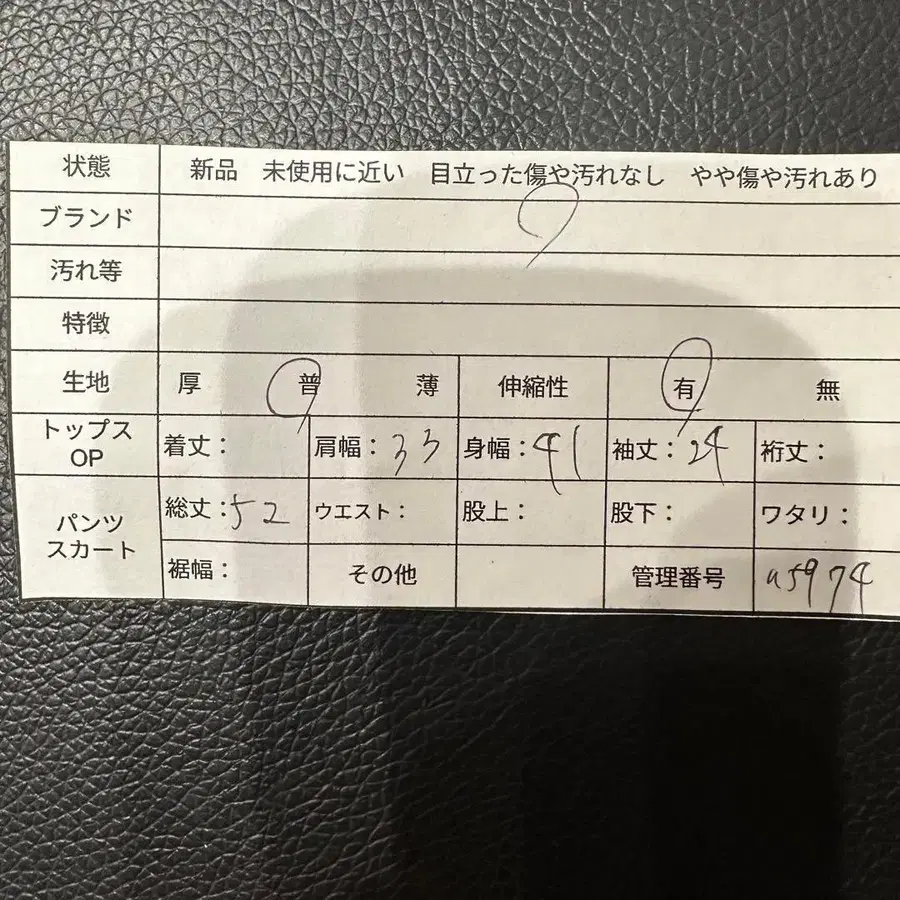 状態 新品 未使用に近い 目立った傷や汚れなし やや傷や汚れあり
ブランド
汚れ等
特徴
生地 厚 普 薄 伸縮性 有 無
トップス
OP
着丈： 肩幅：33 身幅：41 袖丈：24 裄丈：
パンツ
スカート
総丈：52 ウエスト： 股上： 股下： ワタリ：
裾幅： その他 管理番号 a5974